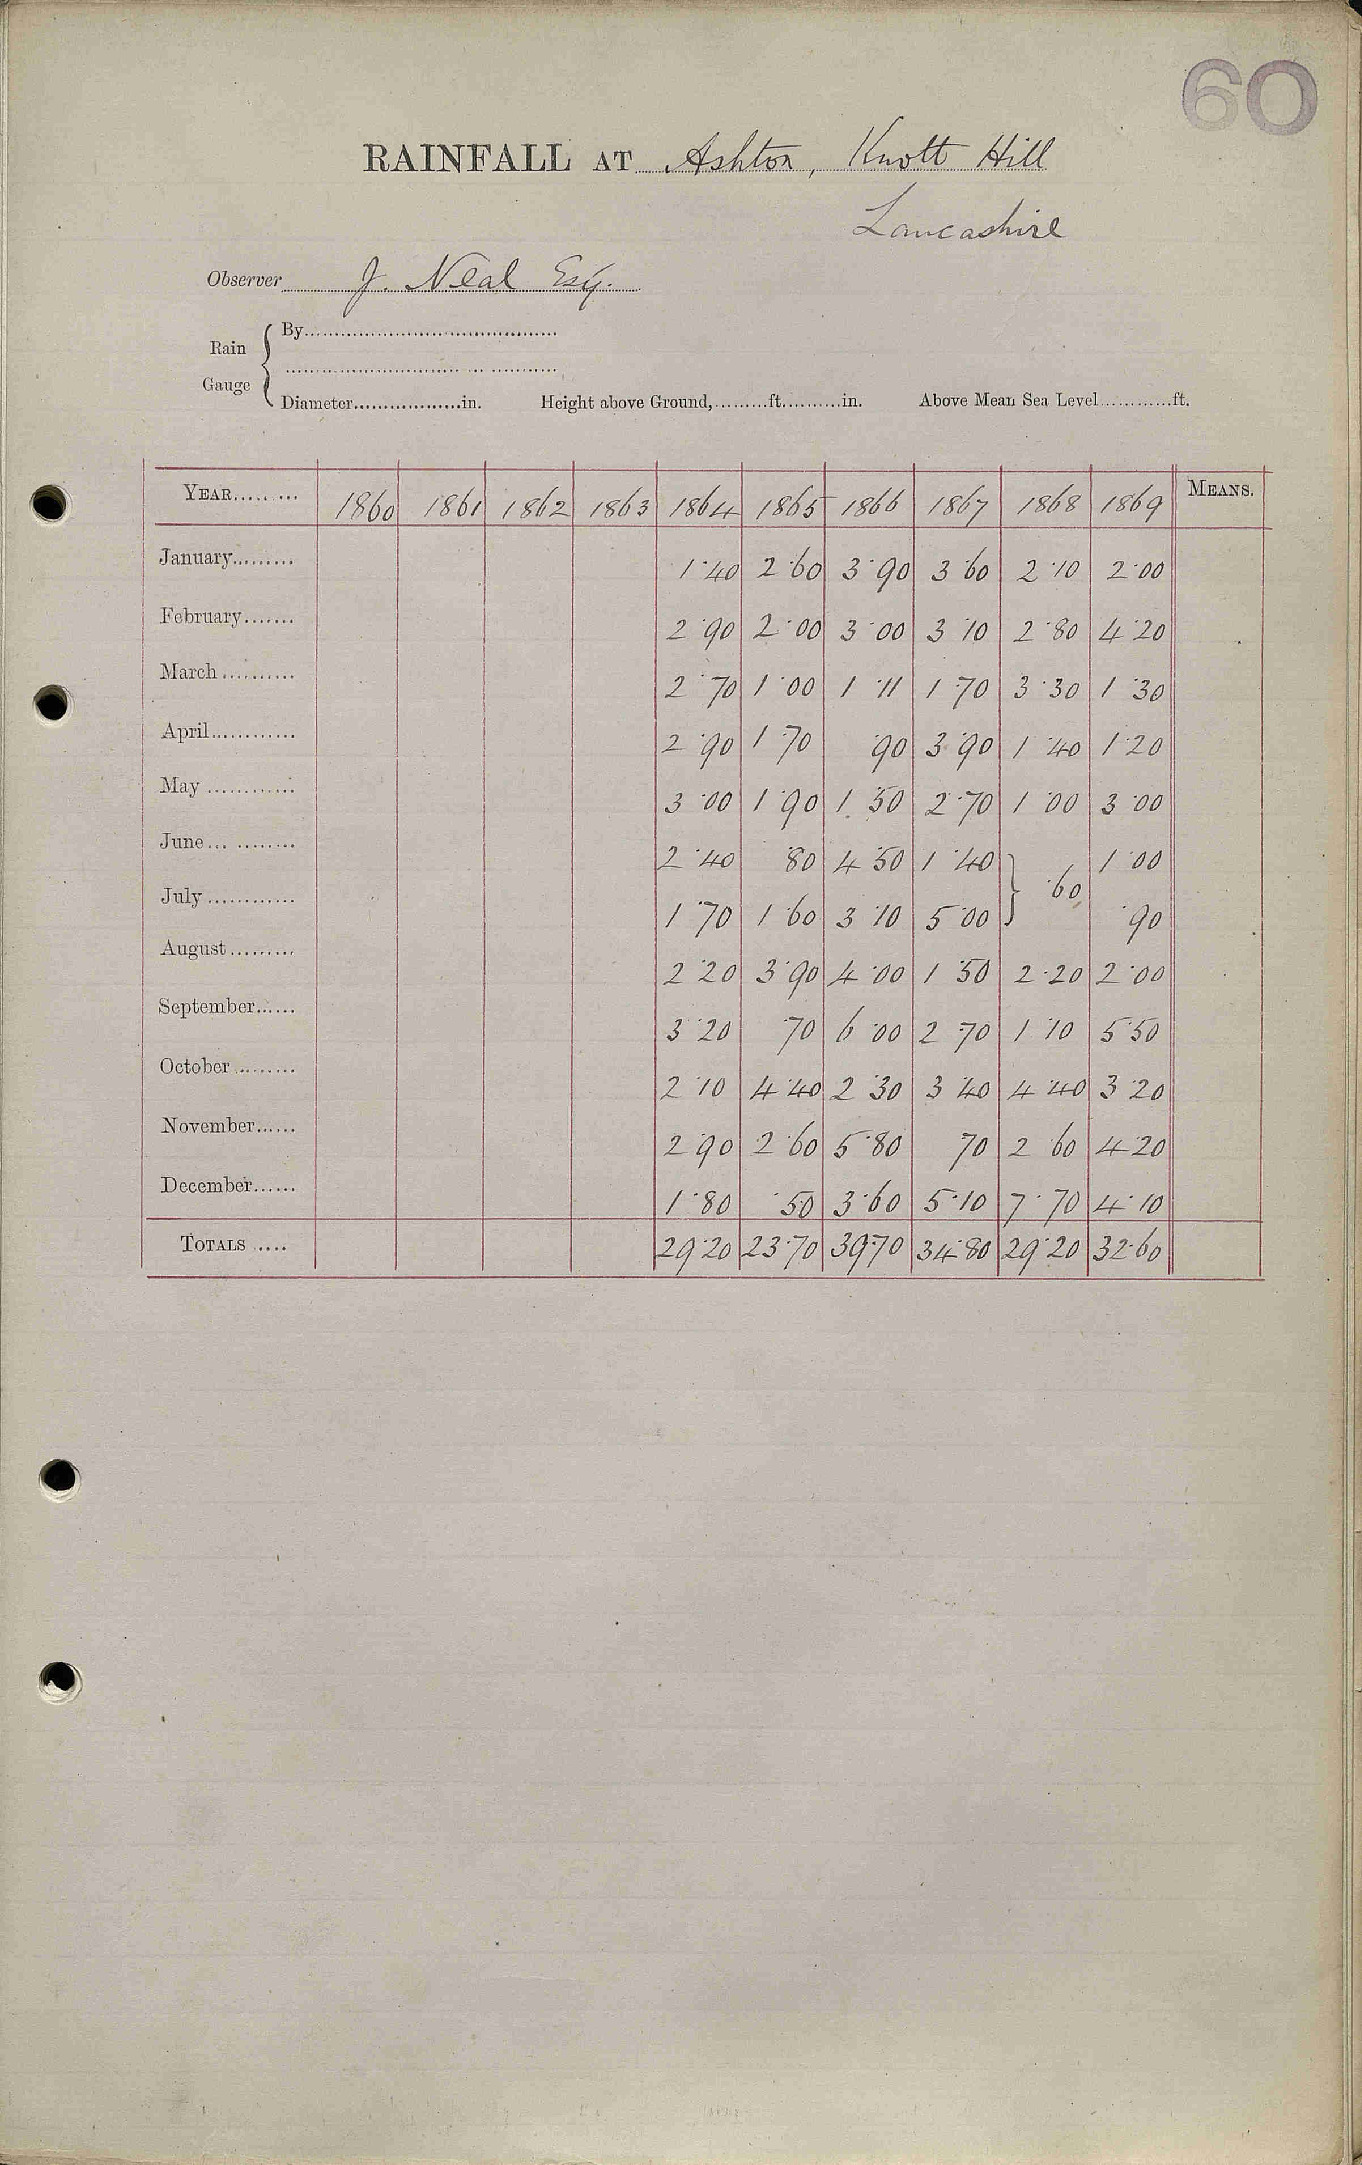 60
RAINFALL AT Ashton, Knott Hill
Lancashire
Observer J. Neal Esq.
Rain Gauge
By
Diameter in. Height above Ground, ft. in. Above Mean Sea Level ft.
YEAR 1860 1861 1862 1863 1864 1865 1866 1867 1868 1869 MEANS.
January 1·40 2·60 3·90 3·60 2·10 2·00
February 2·90 2·00 3·00 3·10 2·80 4·20
March 2·70 1·00 1·11 1·70 3·30 1·30
April 2·90 1·70 ·90 3·90 1·40 1·20
May 3·00 1·90 1·50 2·70 1·00 3·00
June 2·40 ·80 4·50 1·40 } ·60 1·00
July 1·70 1·60 3·10 5·00 ·90
August 2·20 3·90 4·00 1·50 2·20 2·00
September 3·20 ·70 6·00 2·70 1·10 5·50
October 2·10 4·40 2·30 3·40 4·40 3·20
November 2·90 2·60 5·80 ·70 2·60 4·20
December 1·80 ·50 3·60 5·10 7·70 4·10
TOTALS 29·20 23·70 39·70 34·80 29·20 32·60